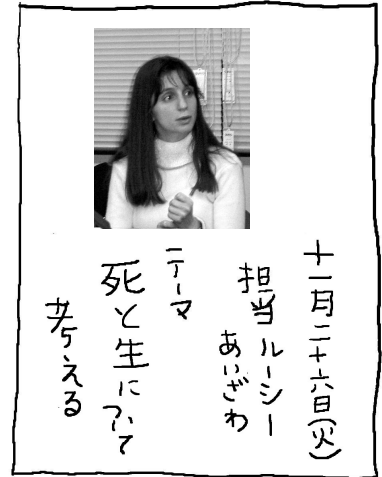 十一月二十六日(火)
担当ルーシー
あいざわ
テーマ
死と生について
考える